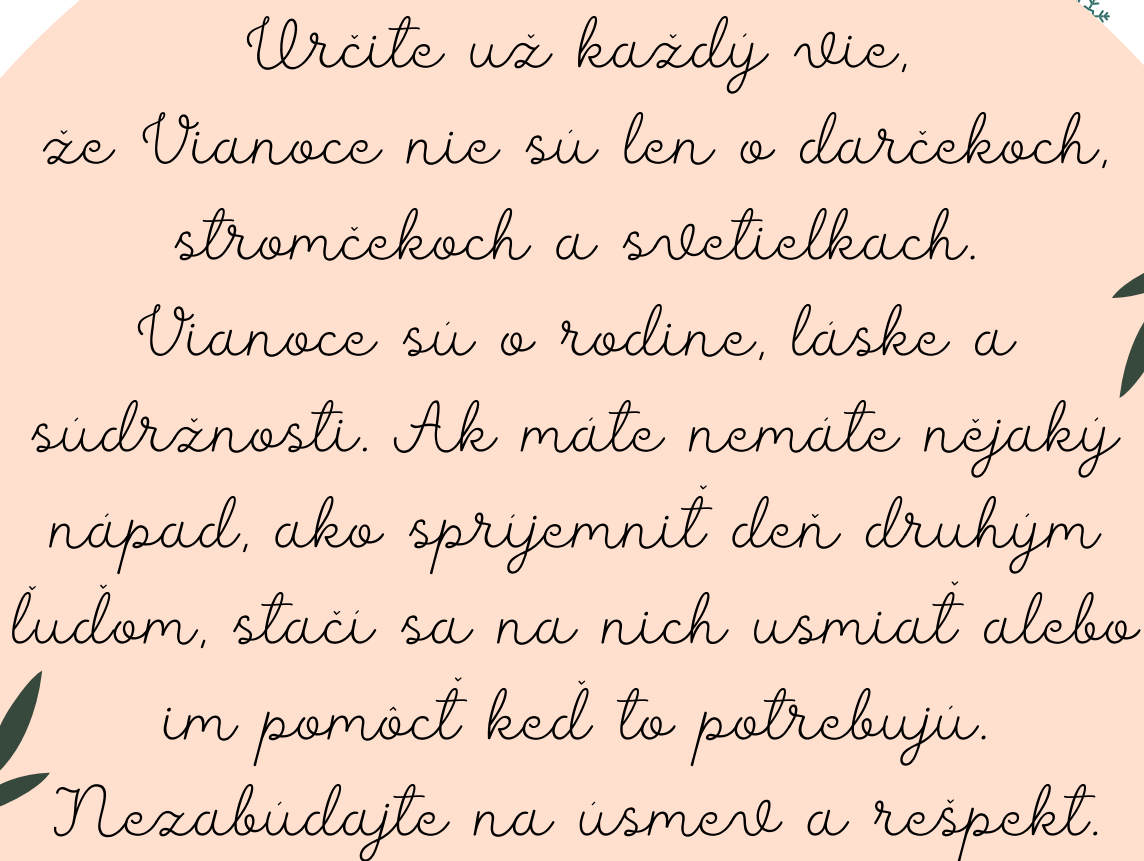 Určite už každý vie,
že Vianoce nie sú len o darčekoch,
stromčekoch a svetielkach.
Vianoce sú o rodine, láske a
súdržnosti. Ak máte nemáte nějaký
nápad, ako spríjemniť deň druhým
ľuďom, stačí sa na nich usmiať alebo
im pomôcť keď to potrebujú.
Nezabúdajte na úsmev a rešpekt.